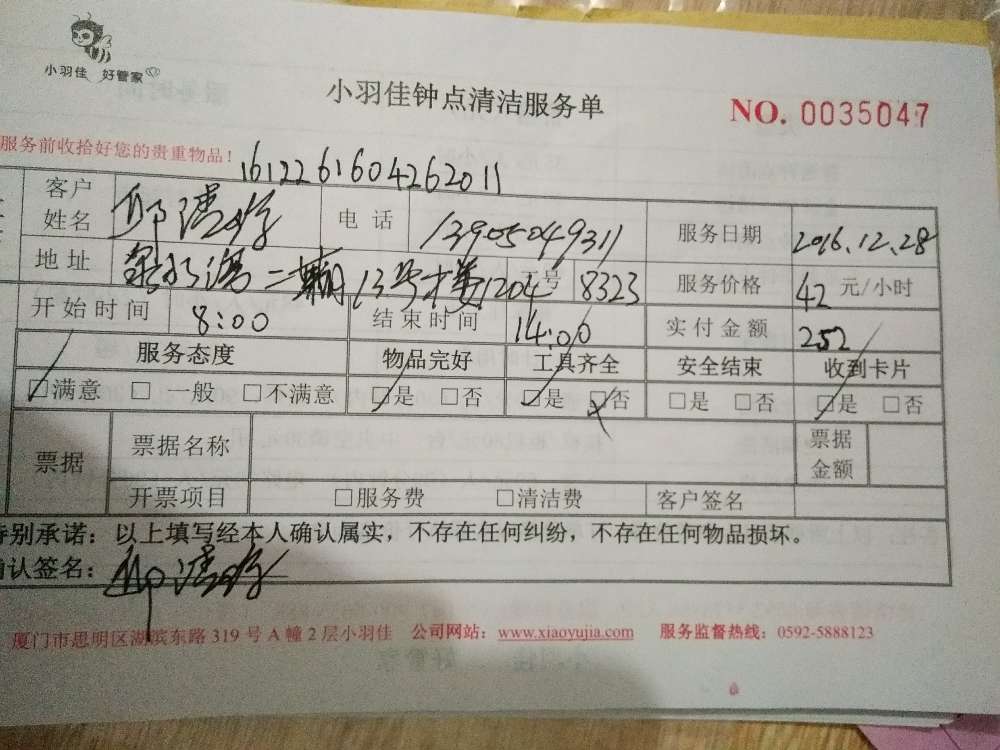 小羽佳 好管家
小羽佳钟点清洁服务单
NO. 0035047
服务前收拾好您的贵重物品!
1612261604262011
客户姓名 电话 13905049311 服务日期 2016.12.28
地址 13号楼1204 8323 服务价格 42 元/小时
开始时间 8:00 结束时间 14:00 实付金额 252
服务态度 物品完好 工具齐全 安全结束 收到卡片
□满意 □一般 □不满意 □是 □否 □是 □否 □是 □否 □是 □否
票据 票据名称 票据金额
开票项目 □服务费 □清洁费 客户签名
特别承诺：以上填写经本人确认属实，不存在任何纠纷，不存在任何物品损坏。
确认签名：
厦门市思明区湖滨东路 319 号 A 幢 2 层小羽佳 公司网站：www.xiaoyujia.com 服务监督热线：0592-5888123